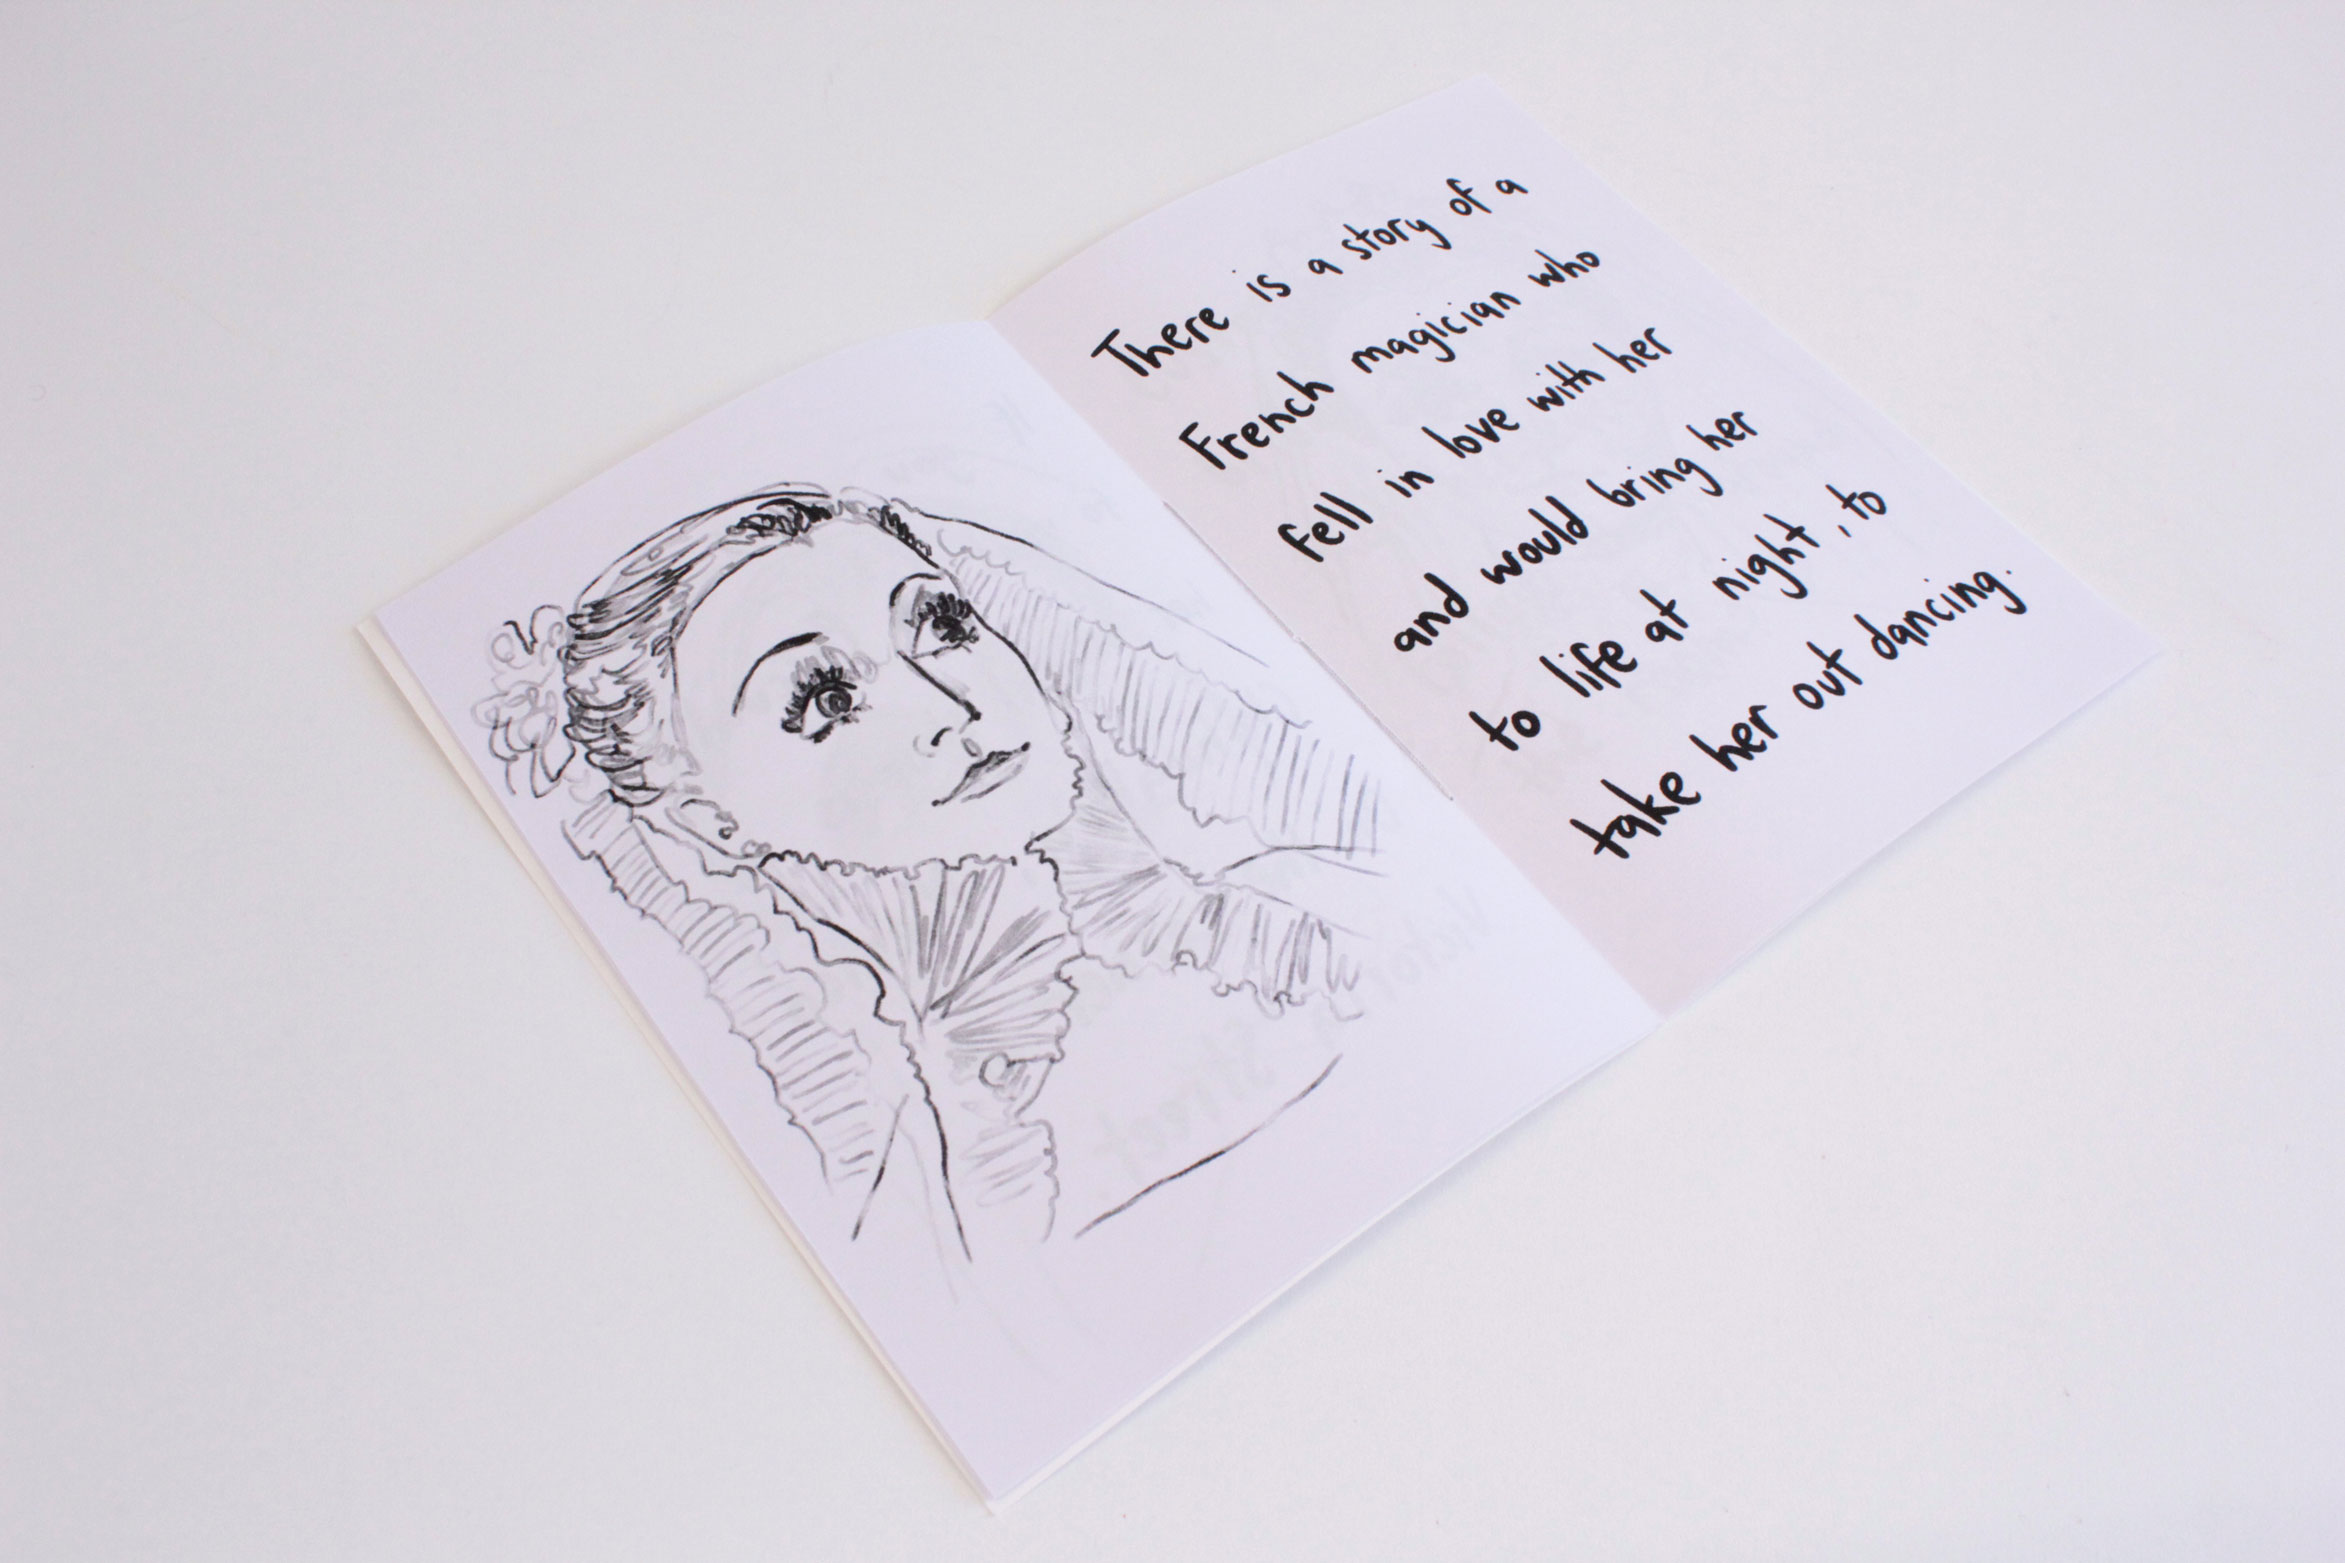 There is a story of a
French magician who
fell in love with her
and would bring her
to life at night, to
take her out dancing.